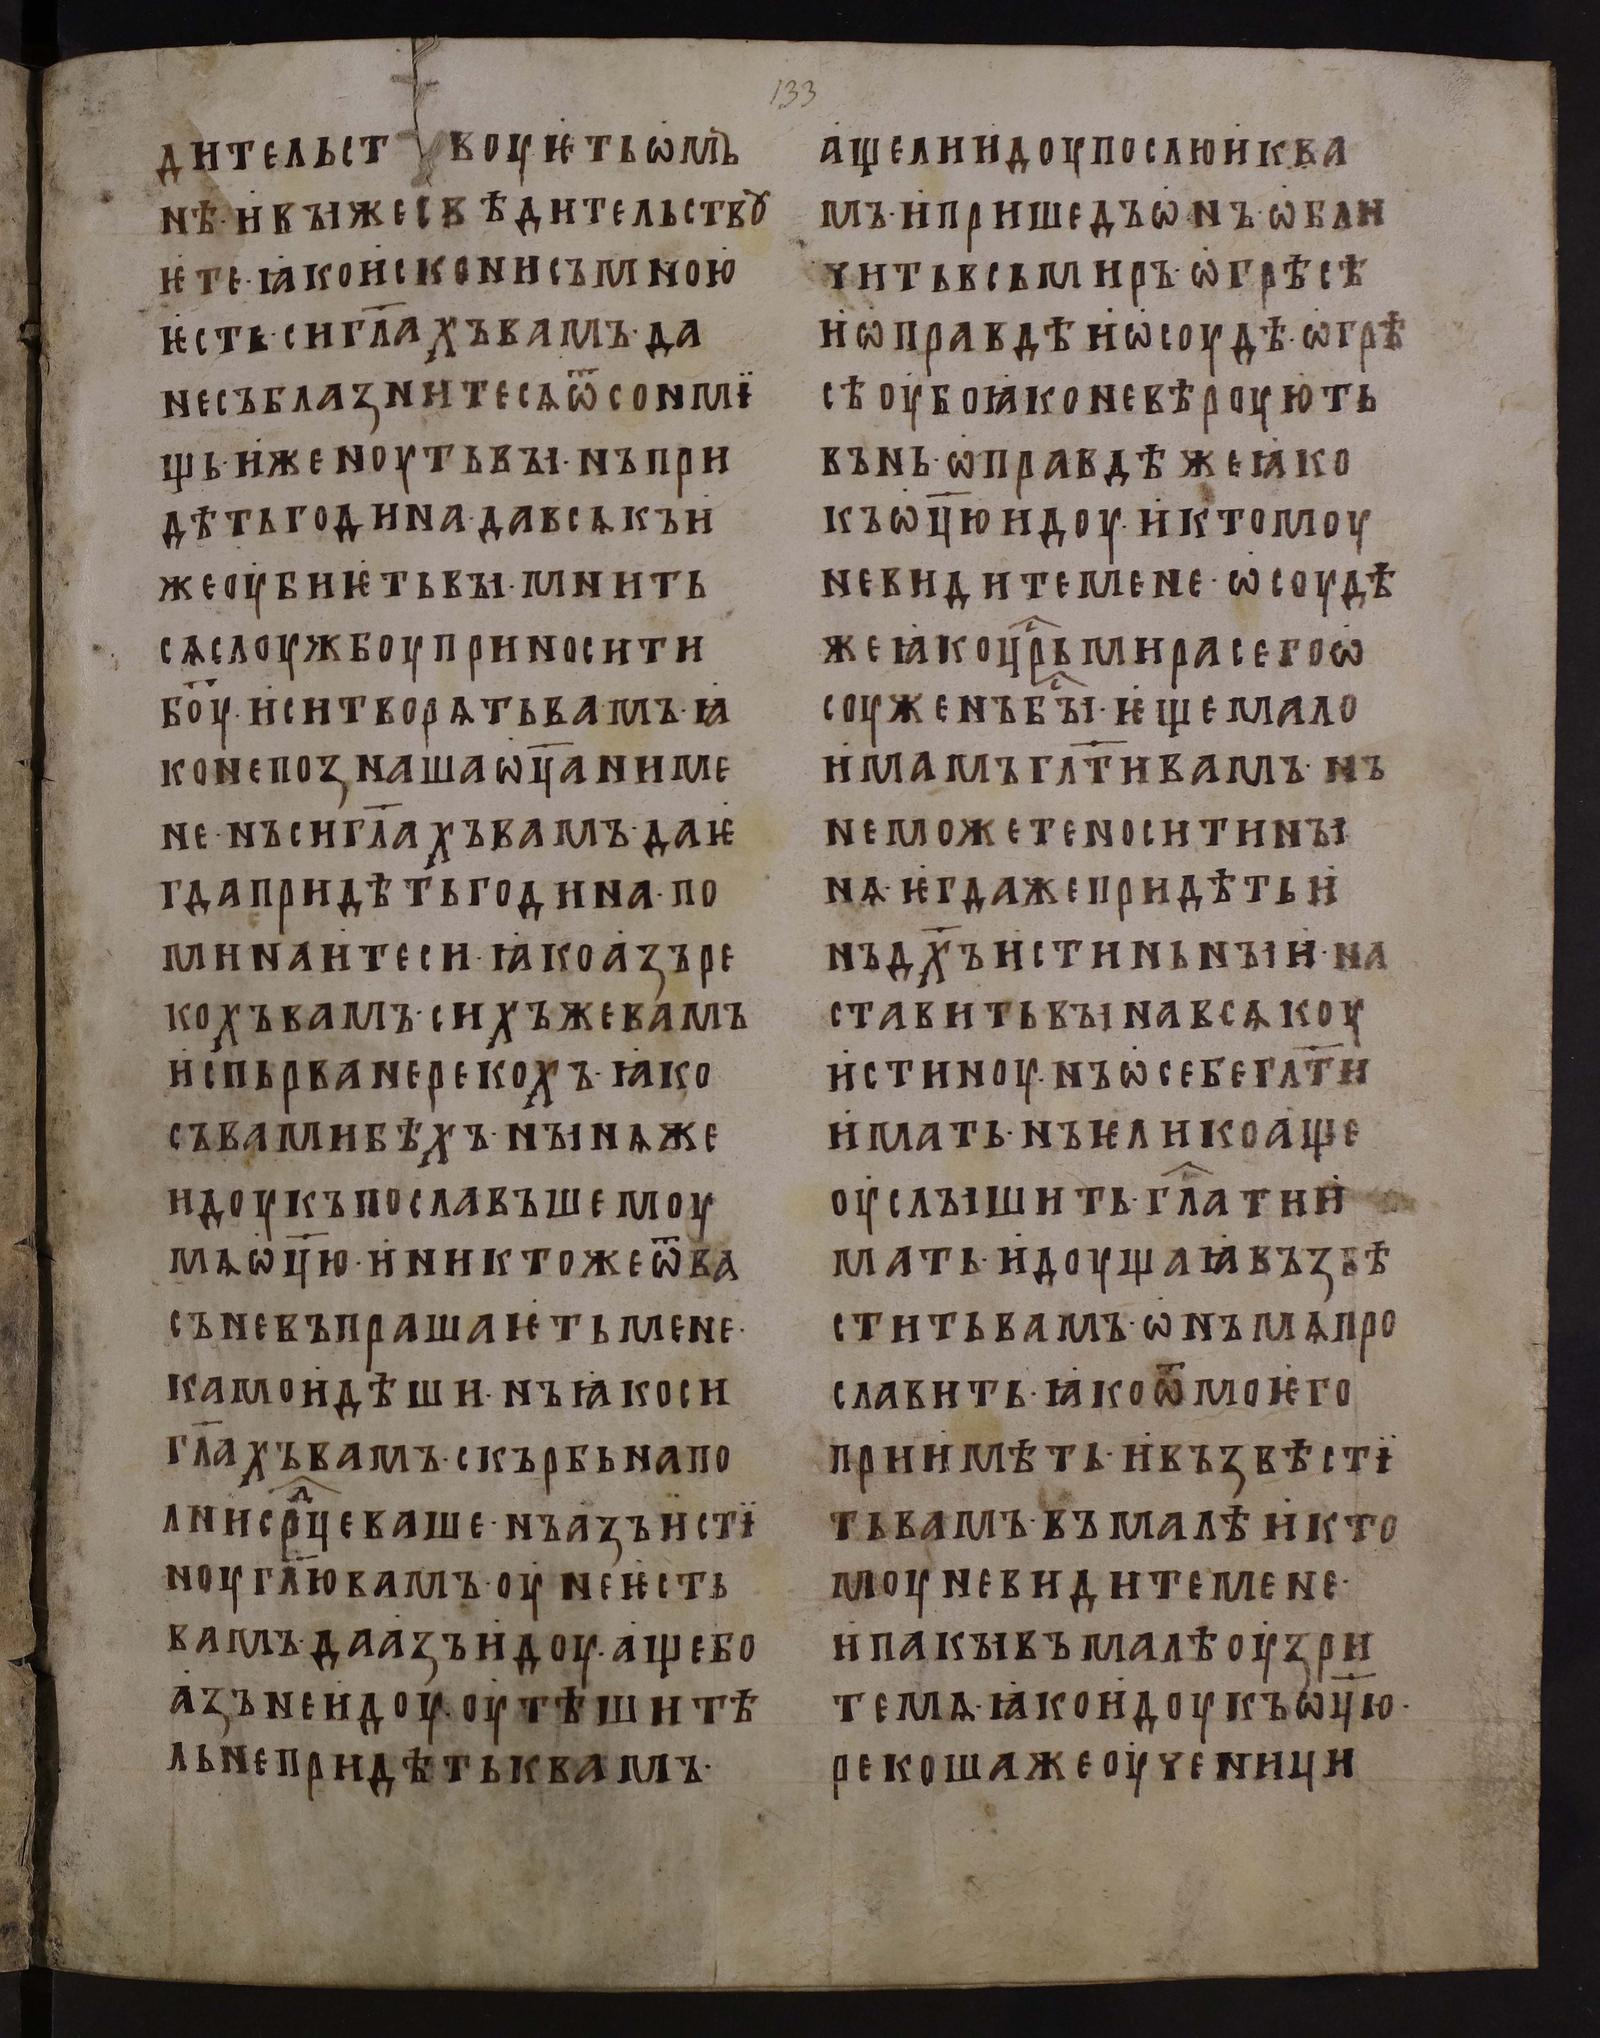 133
дительст воуѥтьѡмъ
нѣ· ивꙑжесвѣдительствꙋ
ѥте· ꙗкоисконисъмною
ѥсть· сигл҃ахъвамъ· да
несъблазнитесѧѿсонмї
щь· иженоутьвꙑ· нъпри
дѣтьгодина· давсѧкъи
жеоубиѥтьвꙑ· мнить
сѧслоужбоуприносити
бо҃у· иситворѧтьвамъ· ꙗ
конепознашаѡц҃аниме
не· нъсигл҃ахъвамъ· даѥ
гдапридѣтьгодина· по
минаитеси· ꙗкоазъре
кохъвамъ· сихъжевамъ
испьрванерекохъ· ꙗко
съвамибѣхъ· нꙑнѧже
идоукъпославъшемоу
мѧѡц҃ю· иниктожеѿва
съневъпрашаѥтьмене·
камоидѣши· нъꙗкоси
гл҃ахъвамъ· скърбьнапо
лнисрⷣцеваше· нъазъистї
ноугл҃ювамъ· оунеѥсть
вамъ· даазъидоу· ащебо
азънеидоу· оутѣшитѣ
льнепридѣтьквамъ·
ащелиидоупослюиква
мъ· ипришедъѡнъ· ѡбли
читьвсьмиръ· ѡгрѣсѣ
иѡправдѣиѡсоудѣ· ѡгрѣ
сѣоубоꙗконевѣроують
вънь· ѡправдѣжеꙗко
къѡц҃юидоу· иктомоу
невидитемене· ѡсоудѣ
жеꙗкоцрⷭ҇ьмирасегоѡ
соуженъбⷭ҇ꙑ· ѥщемало
имамъглт҃ивамъ· нъ
неможетеноситинꙑ
нѧ· ѥгдажепридѣтьи
нъдх҃ъистиньнꙑи· на
ставитьвꙑнавсѧкоу
истиноу· нъѡсебеглт҃и
имать· нъѥликоаще
оуслꙑшить· гл҃атии
мать· идоущаꙗвъзвѣ
ститьвамъ· ѡнъмѧпро
славить· ꙗкоѿмоѥго
прииметь· ивъзвѣстї
тьвамъ· въмалѣикто
моуневидитемене·
ипакꙑвъмалѣоузри
темѧ· ꙗкоидоукъѡц҃ю·
рекошажеоученици